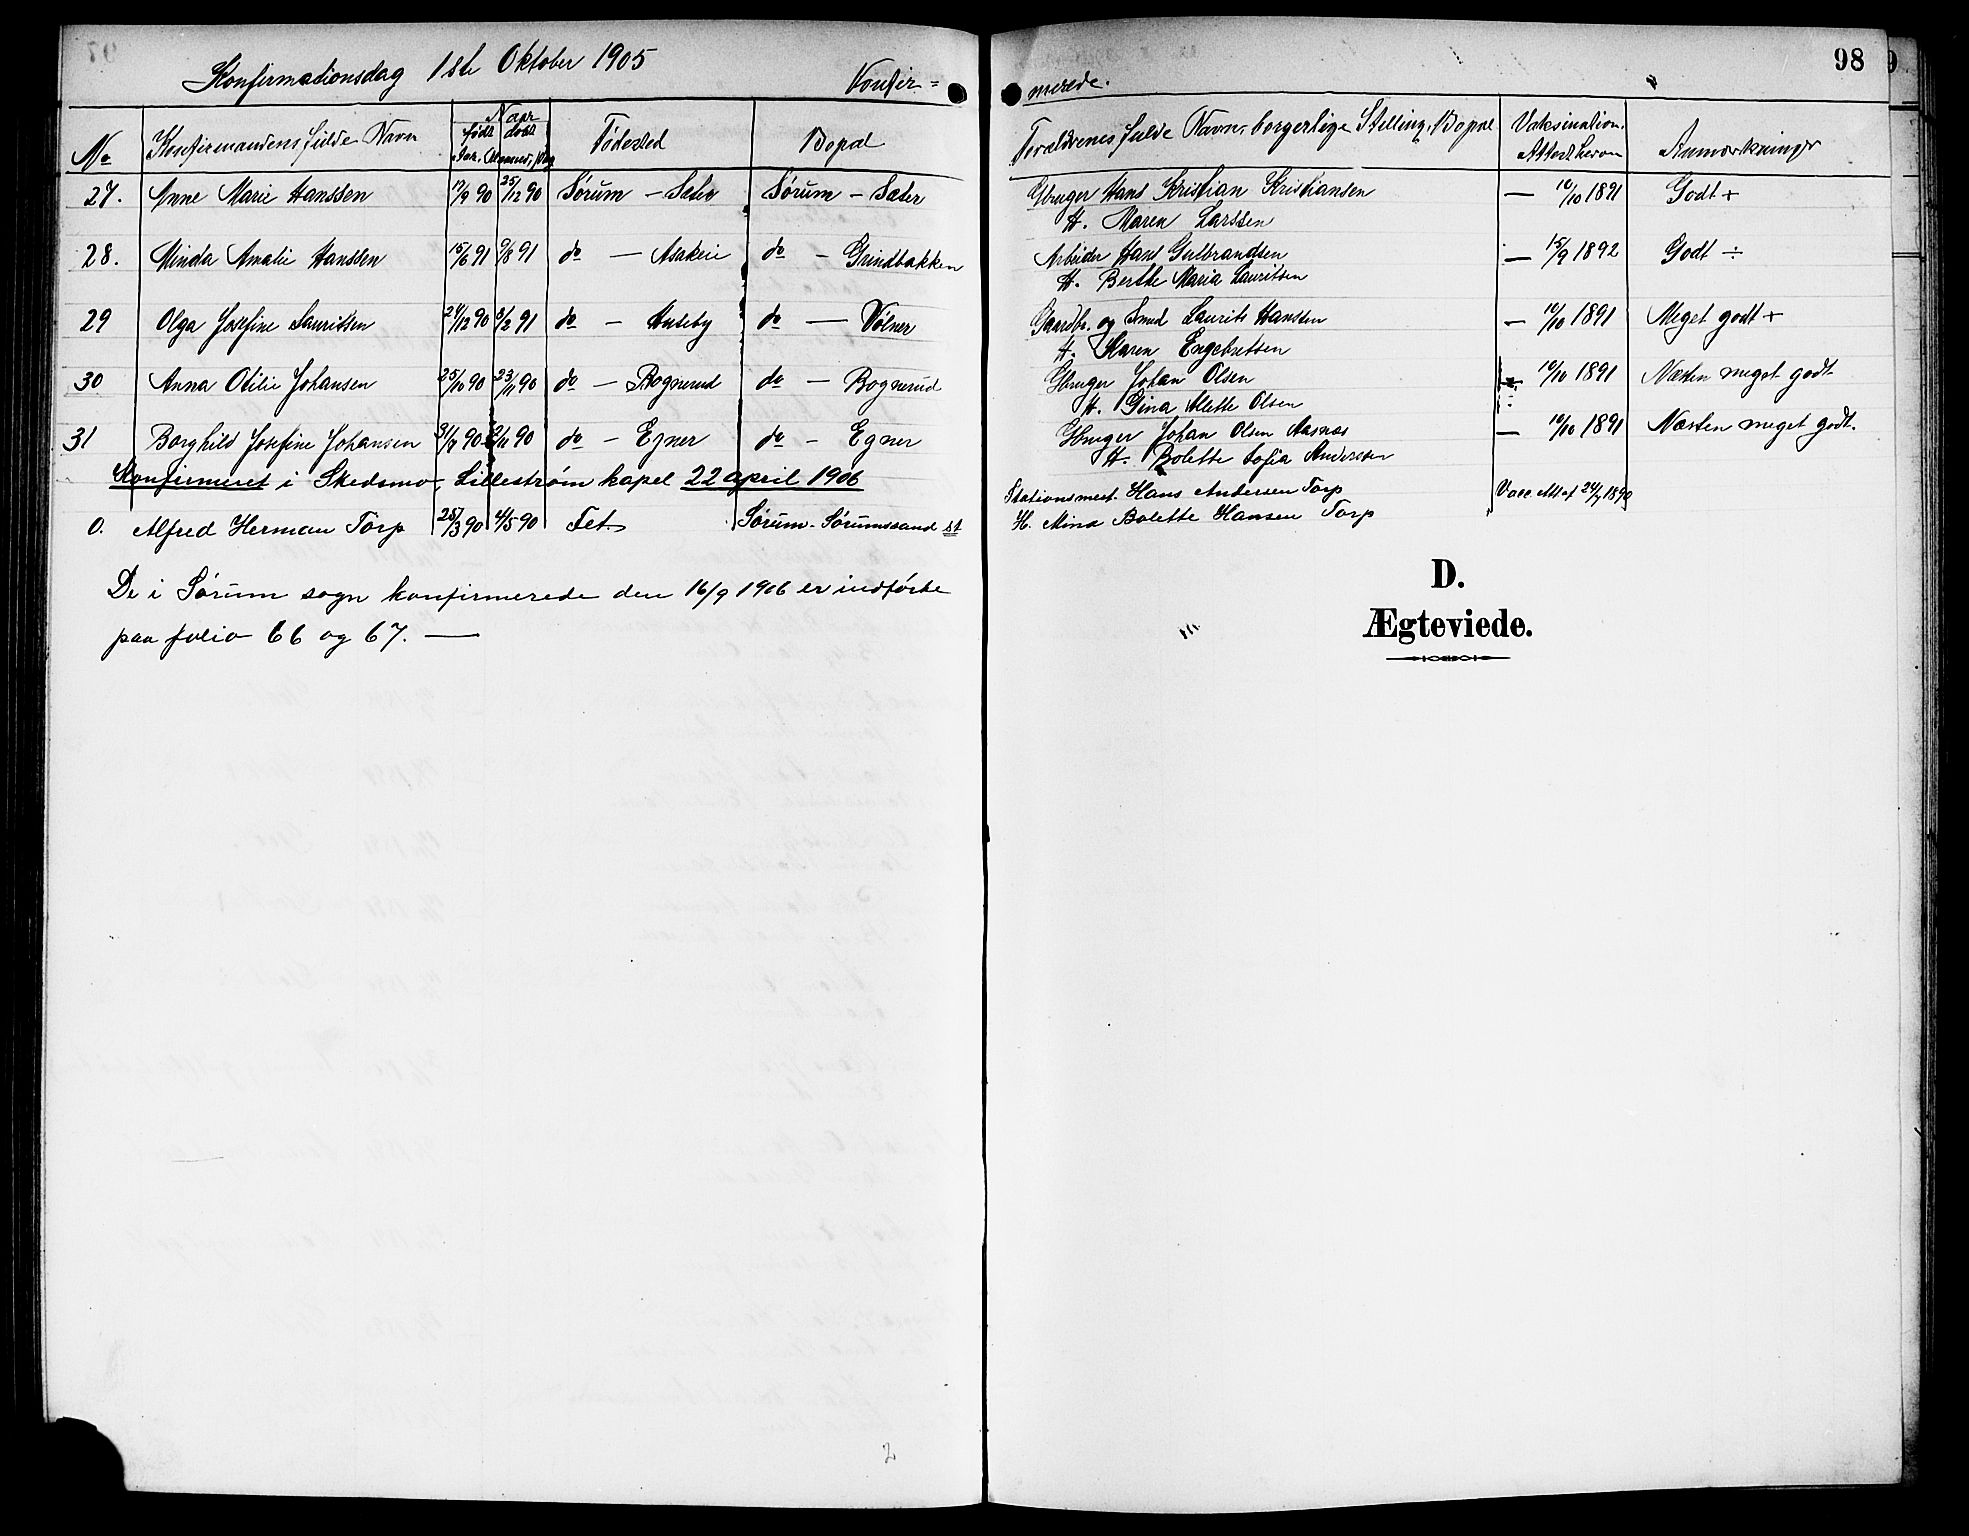 98
Konfirmationsdag 1ste Oktober 1905 Konfir-
merede.
No Konfirmandens fulde Navn Naar født døbt Aar, Maaned, Dag Fødested Bopæl
Forældrenes fulde Navn, borgerlige Stilling, Bopæl Vaksination. Attest herom Anmærkninger
27. Anne Marie Hanssen 17/9 90 25/12 90 Sørum - Sæter Sørum - Sæter
Gbruger Hans Kristian Kristiansen — 10/10 1891 Godt +
H. Maren Larssen
28. Minda Amalie Hanssen 15/6 91 9/8 91 do — Asakeie do - Grindbakken
Arbeider Hans Gulbrandsen — 15/9 1892 Godt ÷
H. Berthe Maria Lauritsen
29 Olga Josefine Lauritsen 24/12 90 8/2 91 do - Huseby do — Vølner
Gaardbr. og Smed Laurits Hanssen — 10/10 1891 Meget godt +
H. Karen Engebretsen
30 Anna Otilie Johansen 25/10 90 23/11 90 do - Bognerud do - Bognerud
Gbruger Johan Olsen — 10/10 1891 Næsten meget godt
H. Gina Alette Olsen
31 Borghild Josefine Johansen 31/7 90 2/11 90 do - Egner do - Egner
Gbruger Johan Olsen Aasnæs — 10/10 1891 Næsten meget godt.
H. Bolette Sofia Anderssen
Konfirmeret i Skedsmo, Lillestrøm kapel 22 april 1906
0. Alfred Herman Torp 25/3 90 4/5 90 Fet. Sørum - Sørumssand st
Stationsmest. Hans Andersen Torp Vacc. Att af 24/9 1890
H. Mina Bolette Hansen Torp
De i Sørum sogn konfirmerede den 16/9 1906 er indførte
paa folio 66 og 67. —
D.
Ægteviede.
2